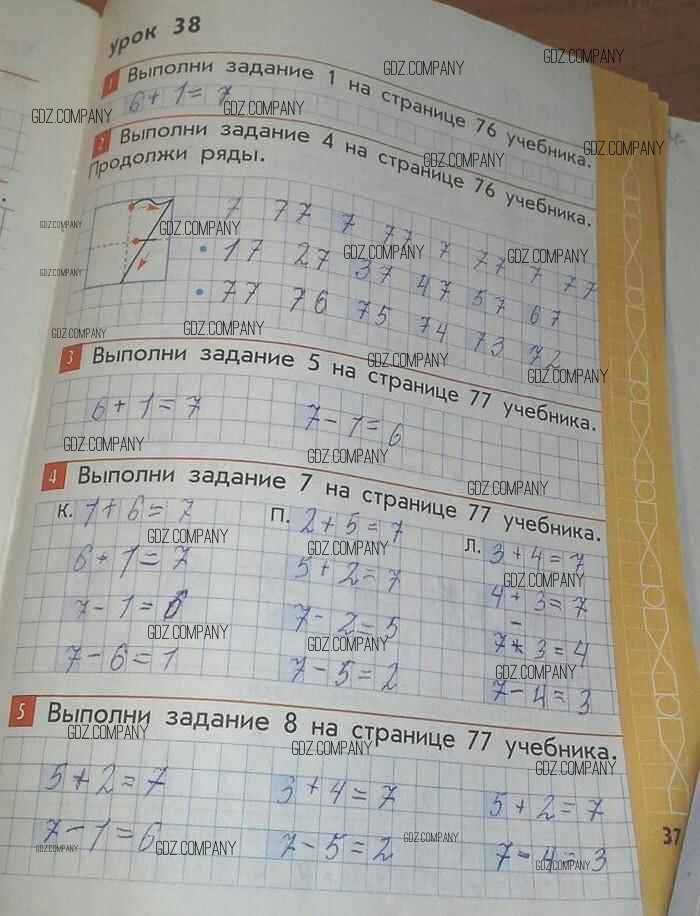 урок 38
1 Выполни задание 1 на странице 76 учебника.
6 + 1 = 7
2 Выполни задание 4 на странице 76 учебника.
Продолжи ряды.
7 77 7 77 7 77 7 77
• 17 27 37 47 57 67
• 77 76 75 74 73 72
3 Выполни задание 5 на странице 77 учебника.
6 + 1 = 7 7 - 1 = 6
4 Выполни задание 7 на странице 77 учебника.
К. 1 + 6 = 7 П. 2 + 5 = 7 Л. 3 + 4 = 7
6 + 1 = 7 5 + 2 = 7 4 + 3 = 7
7 - 1 = 6 7 - 2 = 5 7 - 3 = 4
7 - 6 = 1 7 - 5 = 2 7 - 4 = 3
5 Выполни задание 8 на странице 77 учебника.
5 + 2 = 7 3 + 4 = 7 5 + 2 = 7
7 - 1 = 6 7 - 5 = 2 7 - 4 = 3
37
GDZ.COMPANY